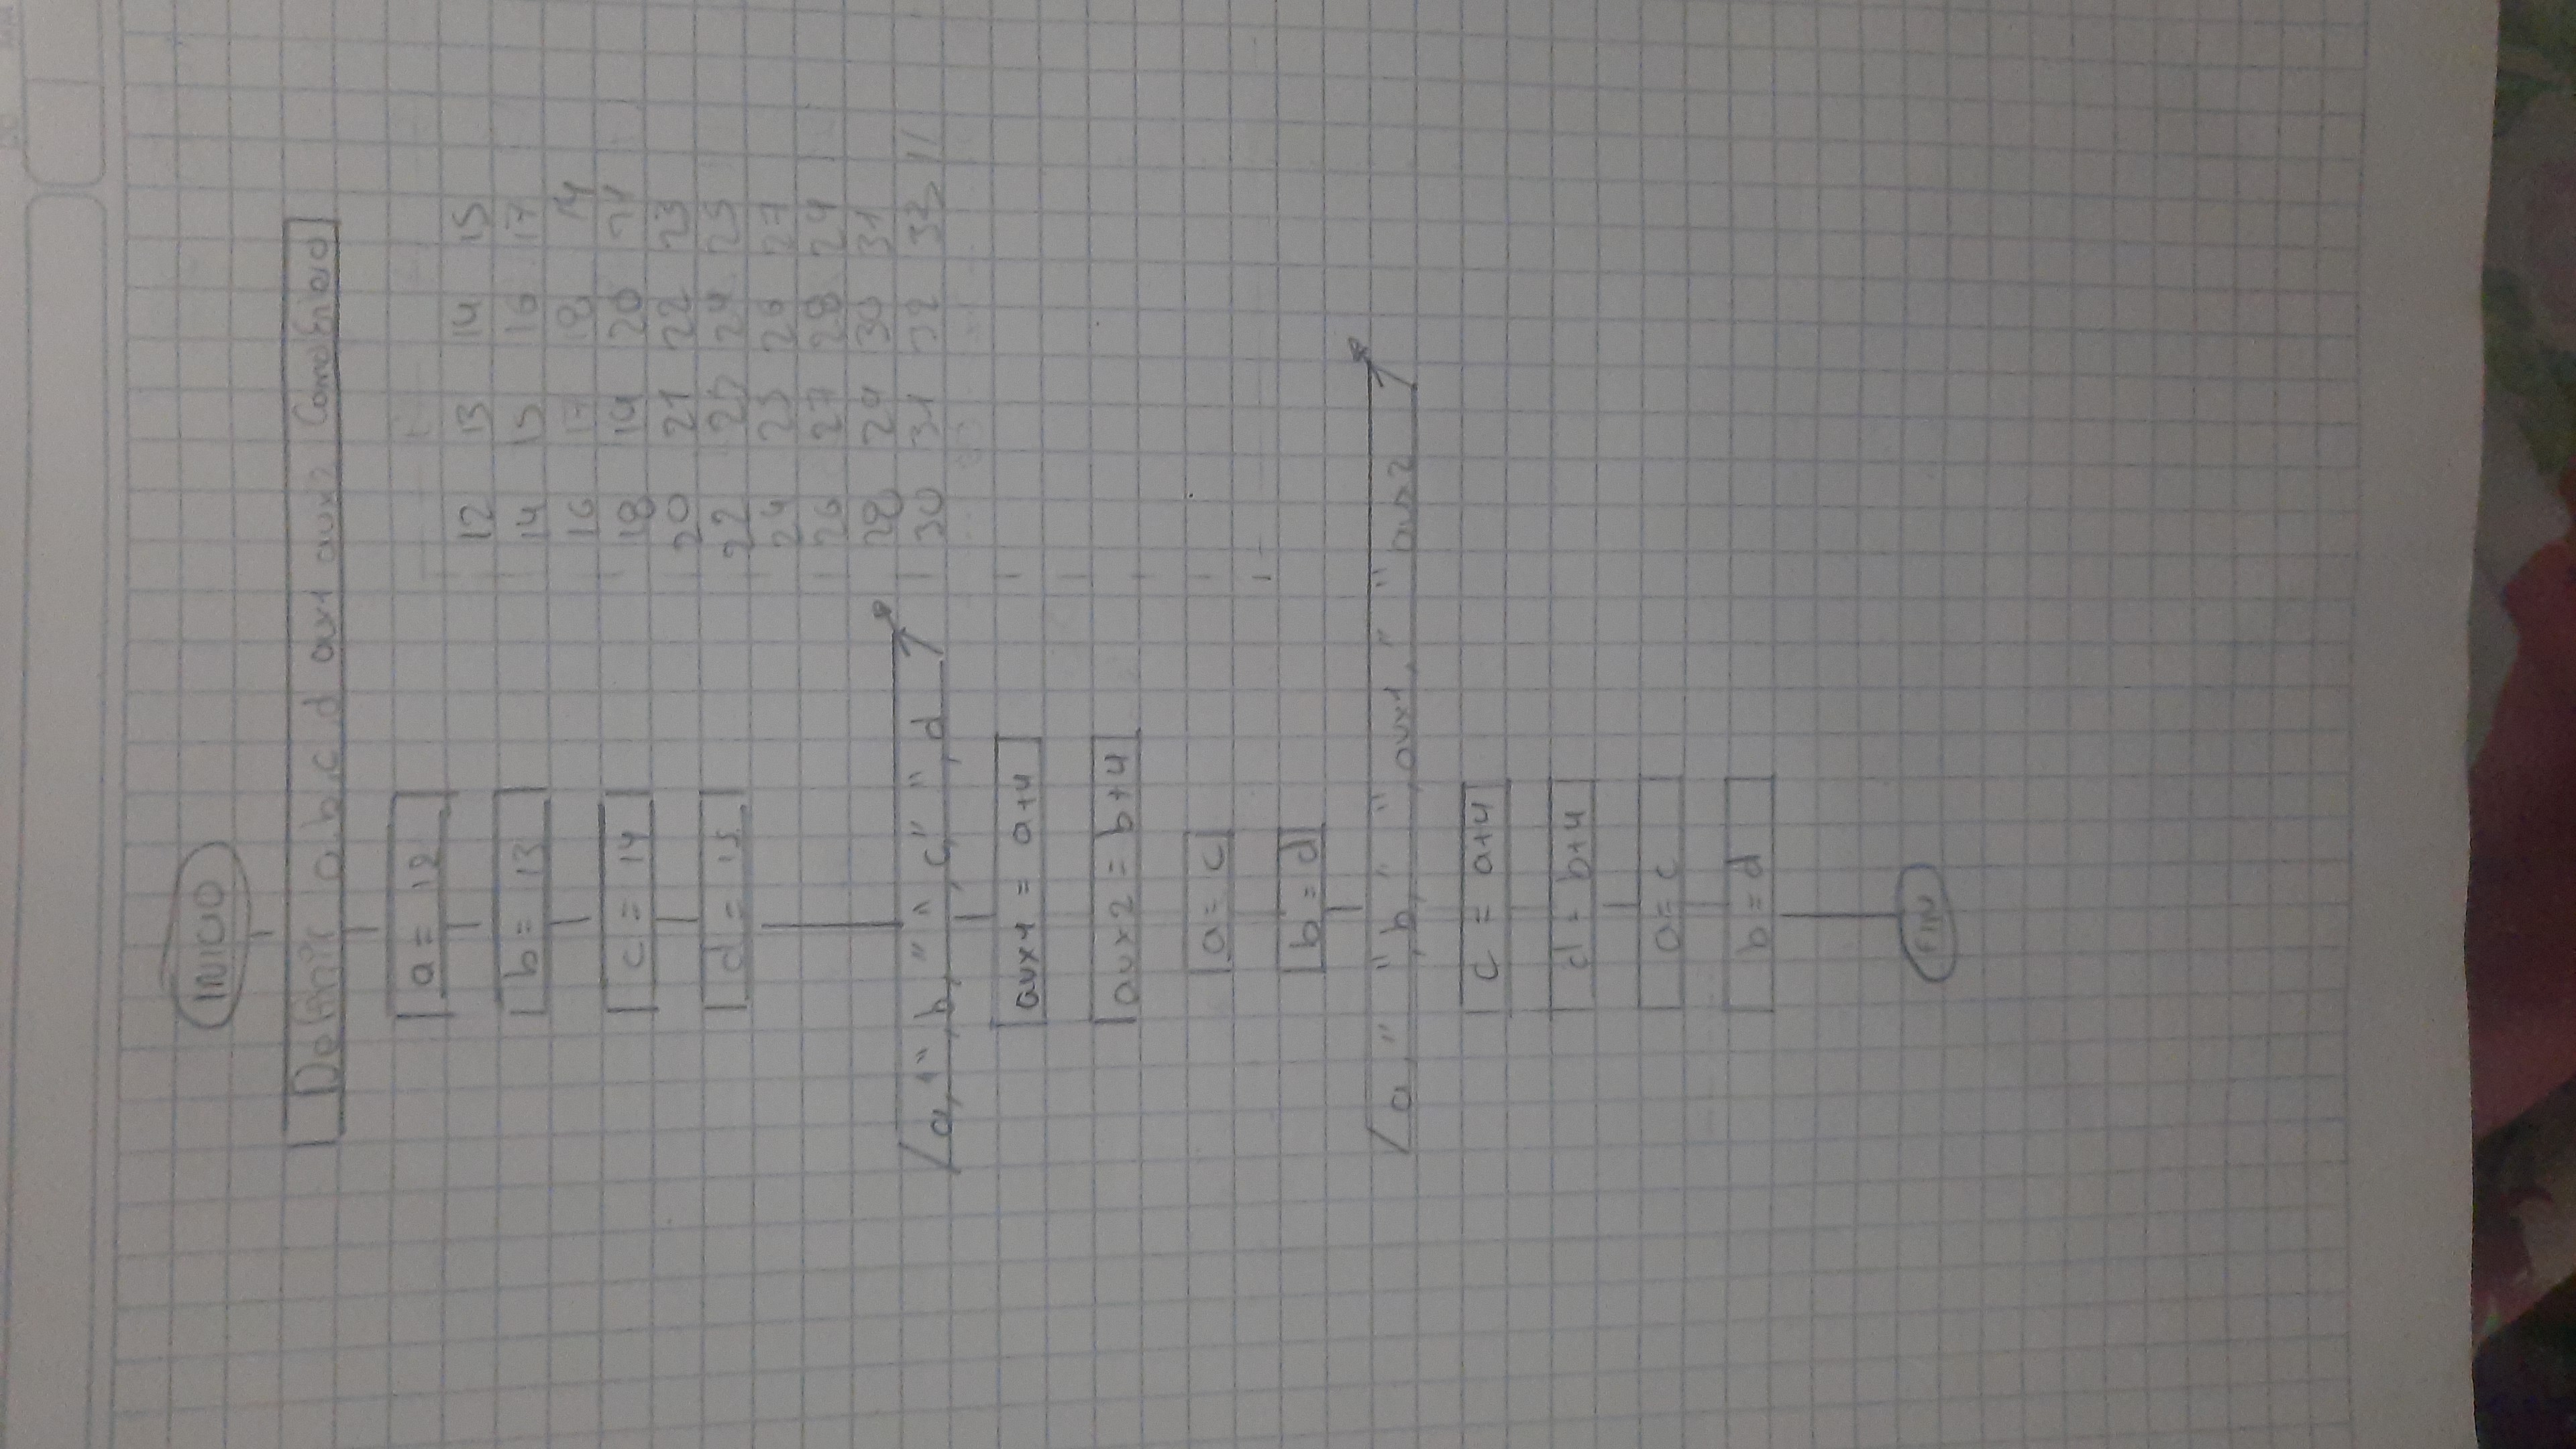 INICIO
Definir a, b, c, d aux1 aux2 Como Entero
a = 12
b = 13
c = 14
d = 15
a, " ", b, " ", c, " ", d
aux1 = a+4
aux2 = b+4
a = c
b = d
a, " ", b, " ", aux1, " " aux2
c = a+4
d = b+4
a = c
b = d
FIN
12 13 14 15
14 15 16 17
16 17 18 19
18 19 20 21
20 21 22 23
22 23 24 25
24 25 26 27
26 27 28 29
28 29 30 31
30 31 32 33 //